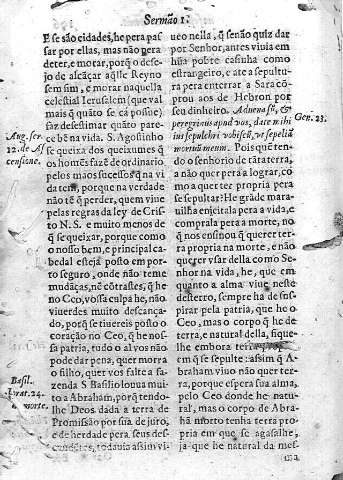 Sermão 1.
E se são cidades, he pera pas
sar por ellas, mas não pera
deter, e morar, porq̃ o dese-
jo de alcãçar aq̃lle Reyno
sem fim, e morar naquella
celestial Ierusalem (que val
mais q̃ quanto se cá posue)
faz desestimar quãto pare-
ce bẽ na vida. S. Agostinho
se queixa dos queixumes q̃
os homẽs fazẽ de ordinario
pelos maos successos q̃ na vi
da tem, porque na verdade
não tẽ q̃ perder, quem viue
pelas regras da ley de Cris-
to N. S. e muito menos de
q̃ se queixar, porque como
o nosso bem, e principal ca-
bedal esteja posto em por-
to seguro, onde não teme
mudãças, nẽ cõtrastes, q̃ he
no Ceo, vossa culpa he, não
viuerdes muito descança-
do, porq̃ se tiuereis posto o
coração no Ceo, q̃ he nos-
sa patria, tudo o al vos não
pode dar pena, quer morra
o filho, quer vos falte a fa-
zenda S. Basilio louua mui-
to a Abraham, porq̃ tendo-
lhe Deos dada a terra de
Promissão por sua de juro,
e de herdade pera seus des-
cendentes, todauia assim vi-
Aug. ser.
12. de As
censione.
Basil.
orat. 24.
morte.
ueo nella, q̃ senão quiz dar
por Senhor, antes viuia em
hũa pobre casinha como
estrangeiro, e ate a sepultu-
ra pera enterrar a Sara cõ-
prou aos de Hebron por
seu dinheiro. Aduena sũ, &
peregrinus apud vos, date mihi
ius sepulchri vobiscũ, vt sepeliã
mortuũ meum. Pois quẽ ten-
do o senhorio de cãta terra,
a não quer pera a lograr, co
mo a quer ter propria pera
se sepultar? He grãde mara-
uilha enjeitala pera a vida, e
comprala pera a morte, no
q̃ nos ensinou q̃ querer ter-
ra propria na morte, e não
querer vsar della como Se-
nhor na vida, he, que em
quanto a alma viue neste
desterro, sempre ha de sus-
pirar pela patria, que he o
Ceo, mas o corpo q̃ he de
terra, e natural della, fique-
lhe embora terra
em q̃ se sepulte: assim q̃ A-
braham viuo não quer ter-
ra, porque espera sua alma,
pelo Ceo donde he natu-
ral, mas o corpo de Abra-
hã morto tenha terra pro-
pria em que se agasalhe,
ja que he natural da mes-
Gen. 23.
ma